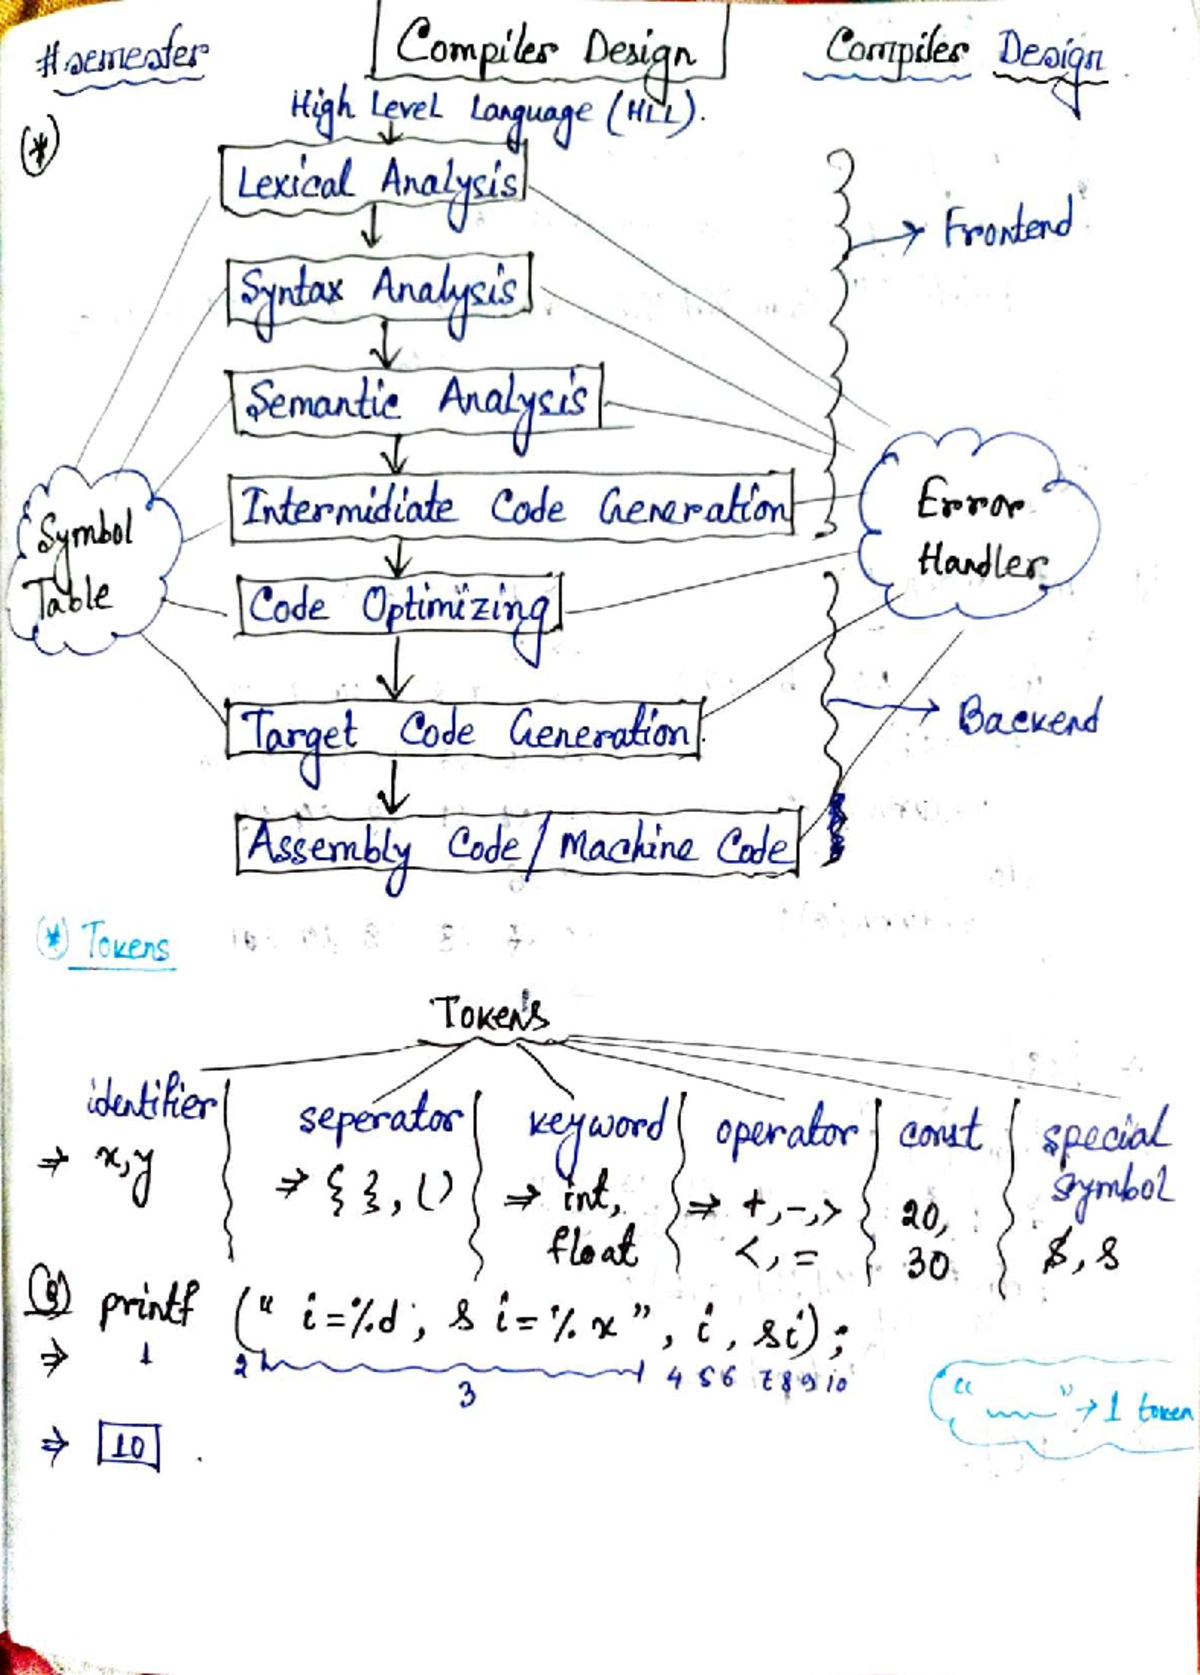 #semester
Compiler Design
Compiler Design
High Level Language (HLL).
(*)
Lexical Analysis
Frontend
Syntax Analysis
Semantic Analysis
Intermidiate Code Generation
Symbol
Table
Error
Handler
Code Optimizing
Target Code Generation
Backend
Assembly Code/Machine Code
(*) Tokens
Tokens
identifier
⇒ x,y
seperator
⇒ { }, ()
keyword
⇒ int,
float
operator
⇒ +,-,>
<, =
const
20,
30
special
symbol
$, &
printf (" i=%d, & i=%x", i, &i);
⇒ 1 2 3 4 5 6 7 8 9 10
" " → 1 token
⇒ 10